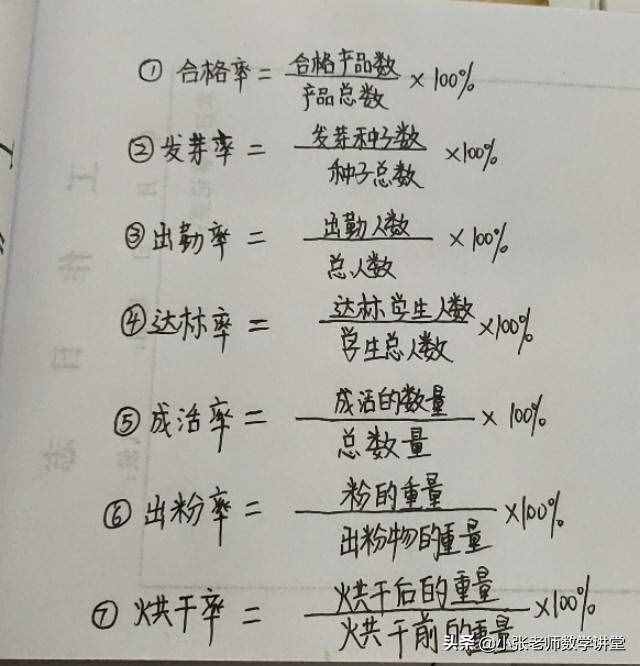 ① 合格率 = 合格产品数 / 产品总数 × 100%
② 发芽率 = 发芽种子数 / 种子总数 × 100%
③ 出勤率 = 出勤人数 / 总人数 × 100%
④ 达标率 = 达标学生人数 / 学生总人数 × 100%
⑤ 成活率 = 成活的数量 / 总数量 × 100%
⑥ 出粉率 = 粉的重量 / 出粉物的重量 × 100%
⑦ 烘干率 = 烘干后的重量 / 烘干前的重量 × 100%
头条 @小张老师数学讲堂